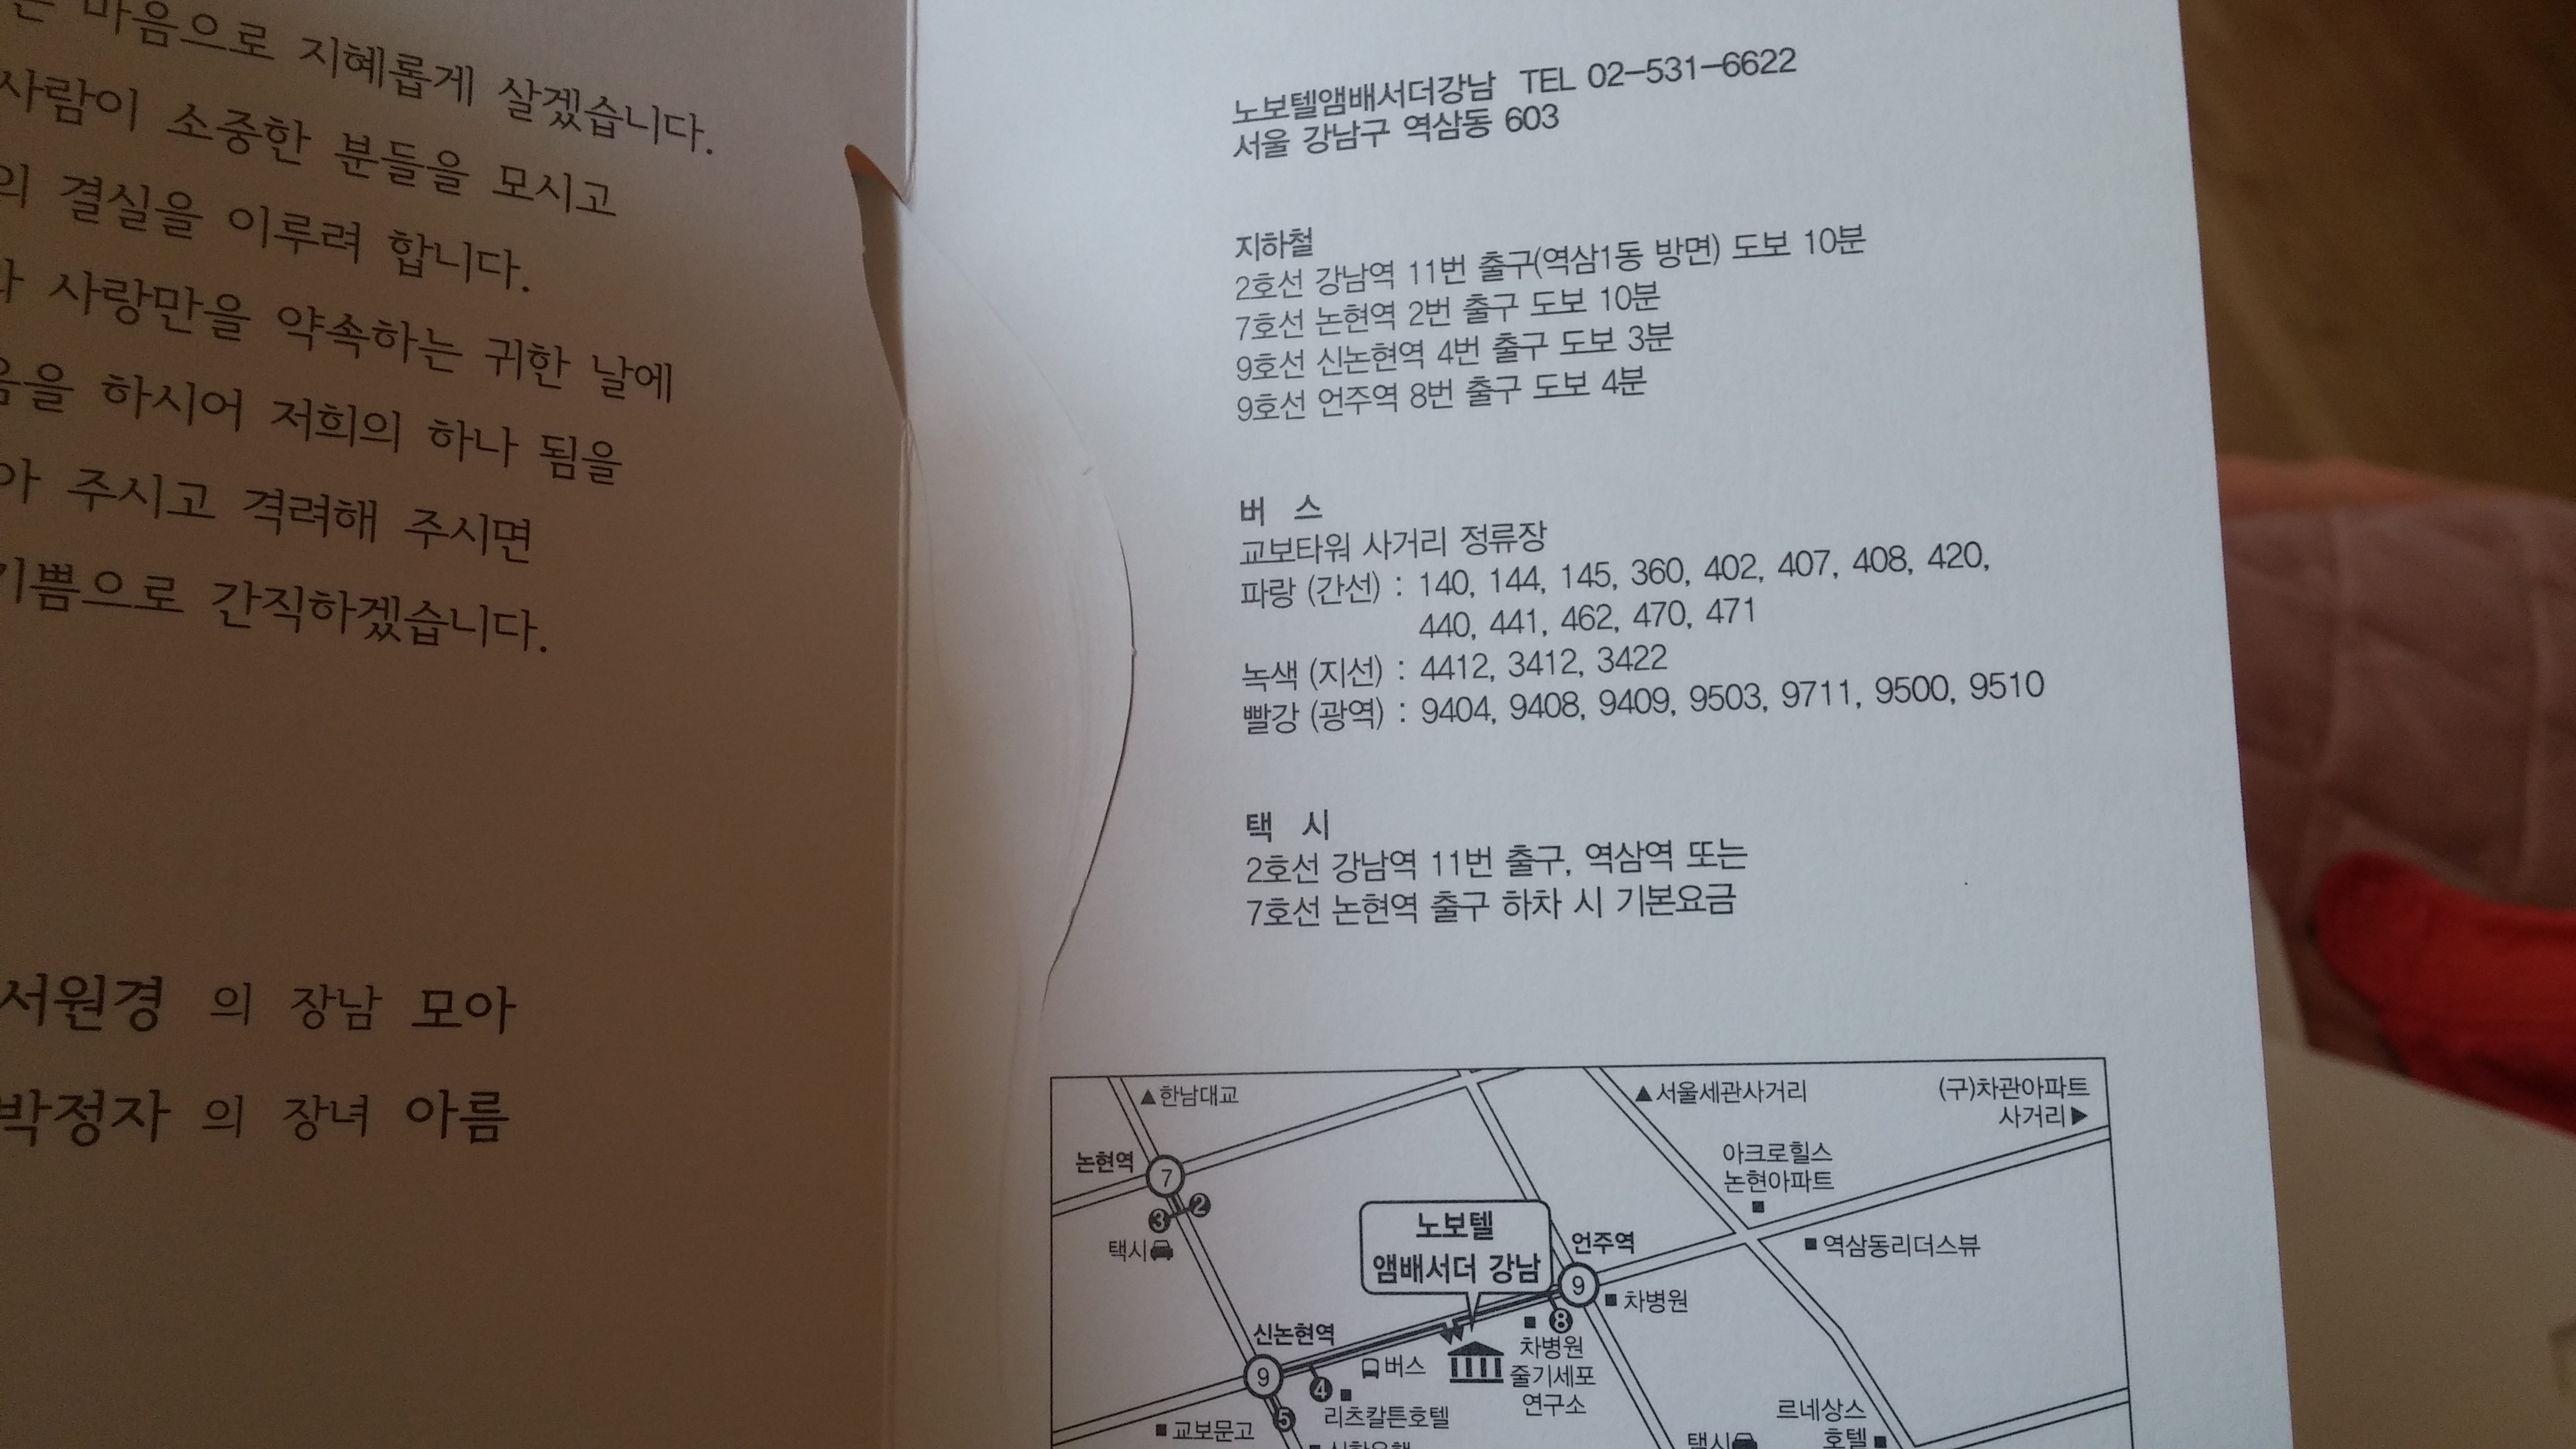 마음으로 지혜롭게 살겠습니다.
사람이 소중한 분들을 모시고
의 결실을 이루려 합니다.
사랑만을 약속하는 귀한 날에
하시어 저희의 하나 됨을
주시고 격려해 주시면
기쁨으로 간직하겠습니다.
서원경 의 장남 모아
박정자 의 장녀 아름
노보텔앰배서더강남 TEL 02-531-6622
서울 강남구 역삼동 603
지하철
2호선 강남역 11번 출구(역삼1동 방면) 도보 10분
7호선 논현역 2번 출구 도보 10분
9호선 신논현역 4번 출구 도보 3분
9호선 언주역 8번 출구 도보 4분
버 스
교보타워 사거리 정류장
파랑 (간선) : 140, 144, 145, 360, 402, 407, 408, 420,
440, 441, 462, 470, 471
녹색 (지선) : 4412, 3412, 3422
빨강 (광역) : 9404, 9408, 9409, 9503, 9711, 9500, 9510
택 시
2호선 강남역 11번 출구, 역삼역 또는
7호선 논현역 출구 하차 시 기본요금
▲한남대교
▲서울세관사거리
(구)차관아파트
사거리▶
논현역
7
3
2
택시
아크로힐스
논현아파트
노보텔
앰배서더 강남
언주역
9
역삼동리더스뷰
차병원
8
신논현역
9
4
5
버스
차병원
줄기세포
연구소
리츠칼튼호텔
교보문고
르네상스
호텔
택시